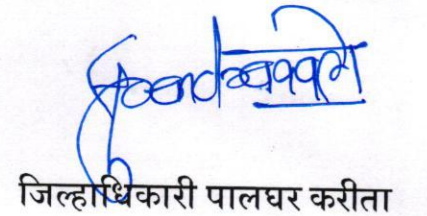 जिल्हाधिकारी पालघर करीता